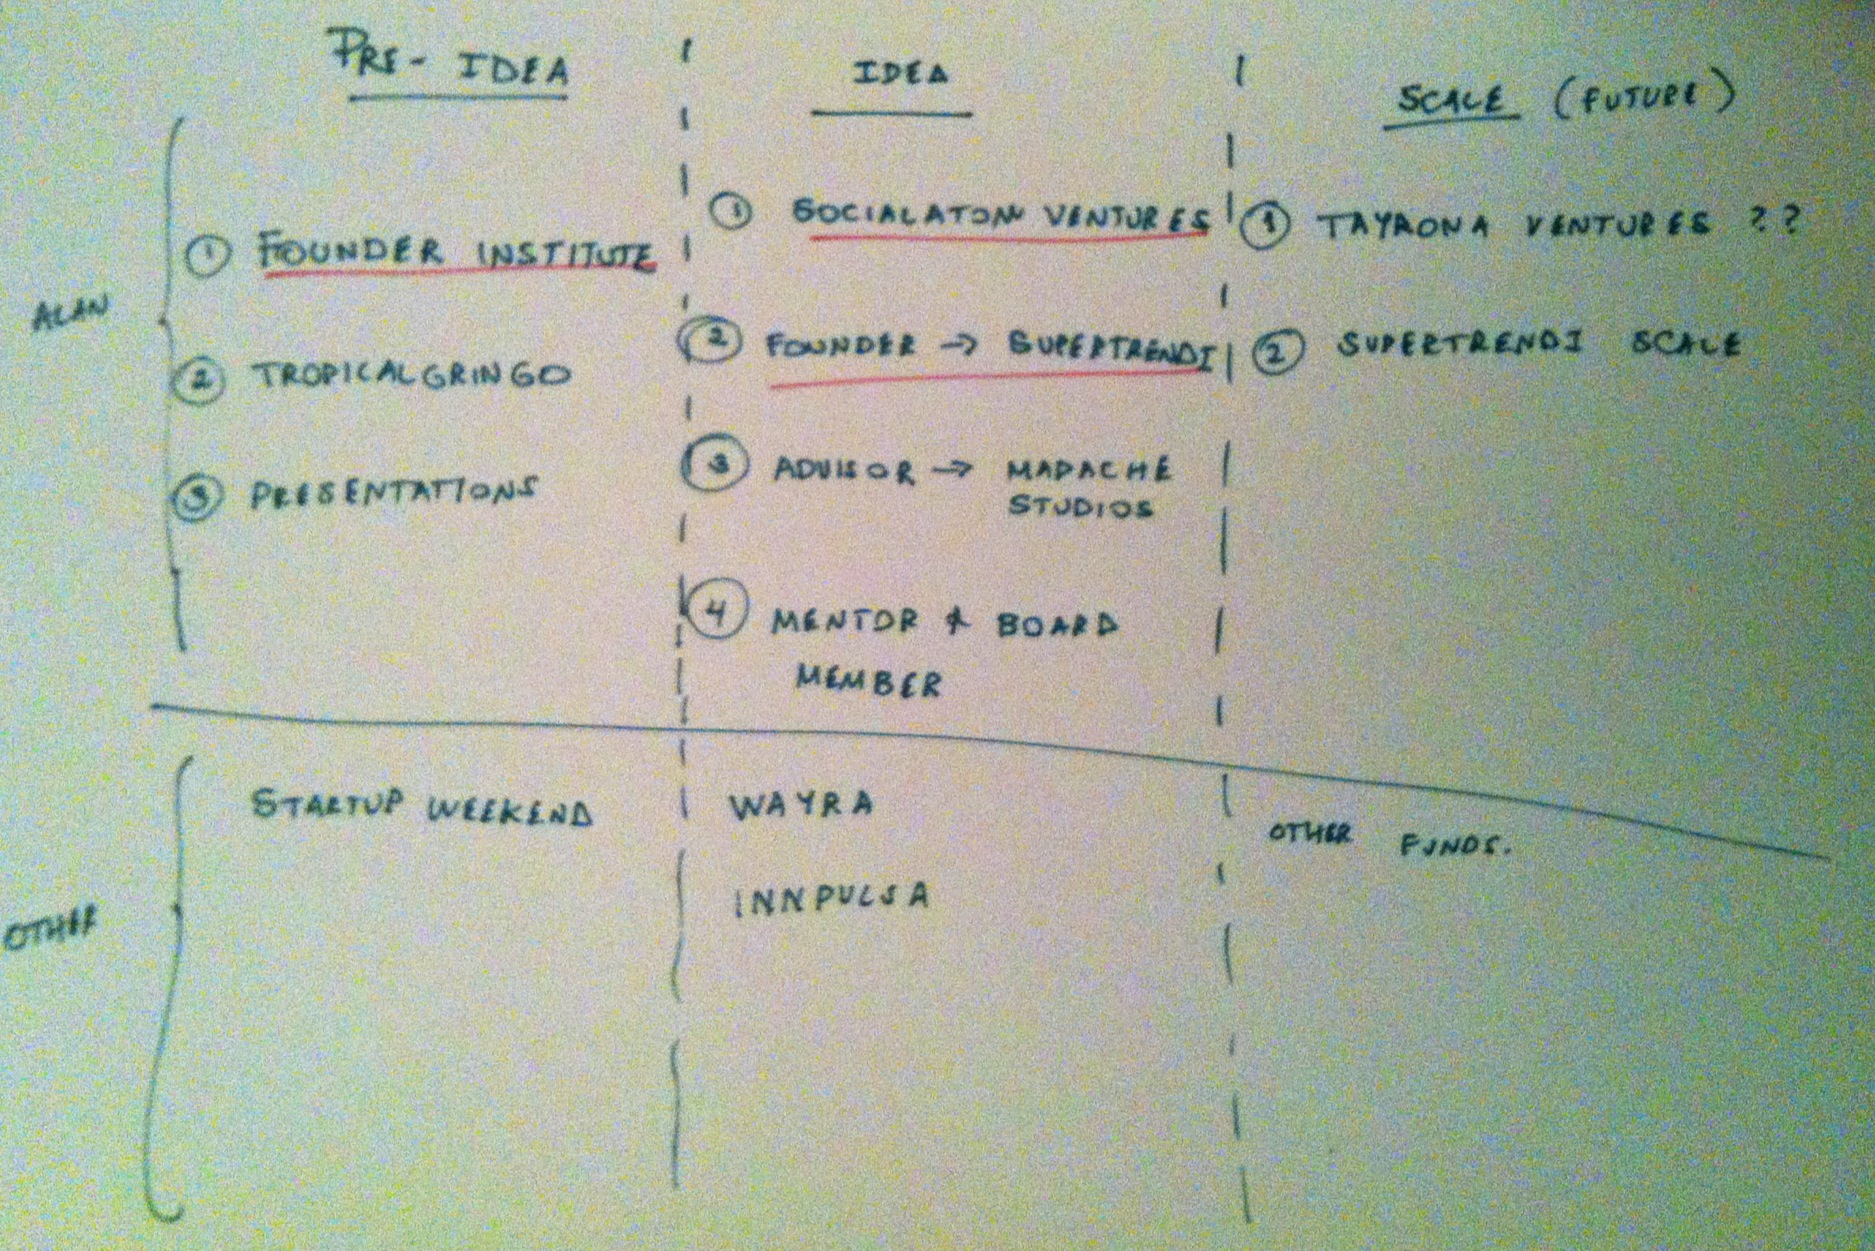 PRE-IDEA
IDEA
SCALE (FUTURE)
ALAN
① FOUNDER INSTITUTE
② TROPICALGRINGO
③ PRESENTATIONS
① SOCIALATOM VENTURES
② FOUNDER → SUPERTRENDI
③ ADVISOR → MAPACHE
STUDIOS
④ MENTOR & BOARD
MEMBER
① TAYRONA VENTURES ??
② SUPERTRENDI SCALE
OTHER
STARTUP WEEKEND
WAYRA
INNPULSA
OTHER FUNDS.